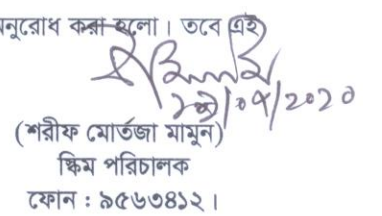 নুরোধ করা হলো। তবে এই
(শরীফ মোর্তজা মামুন)
স্কিম পরিচালক
ফোন : ৯৫৬৩৪১২।